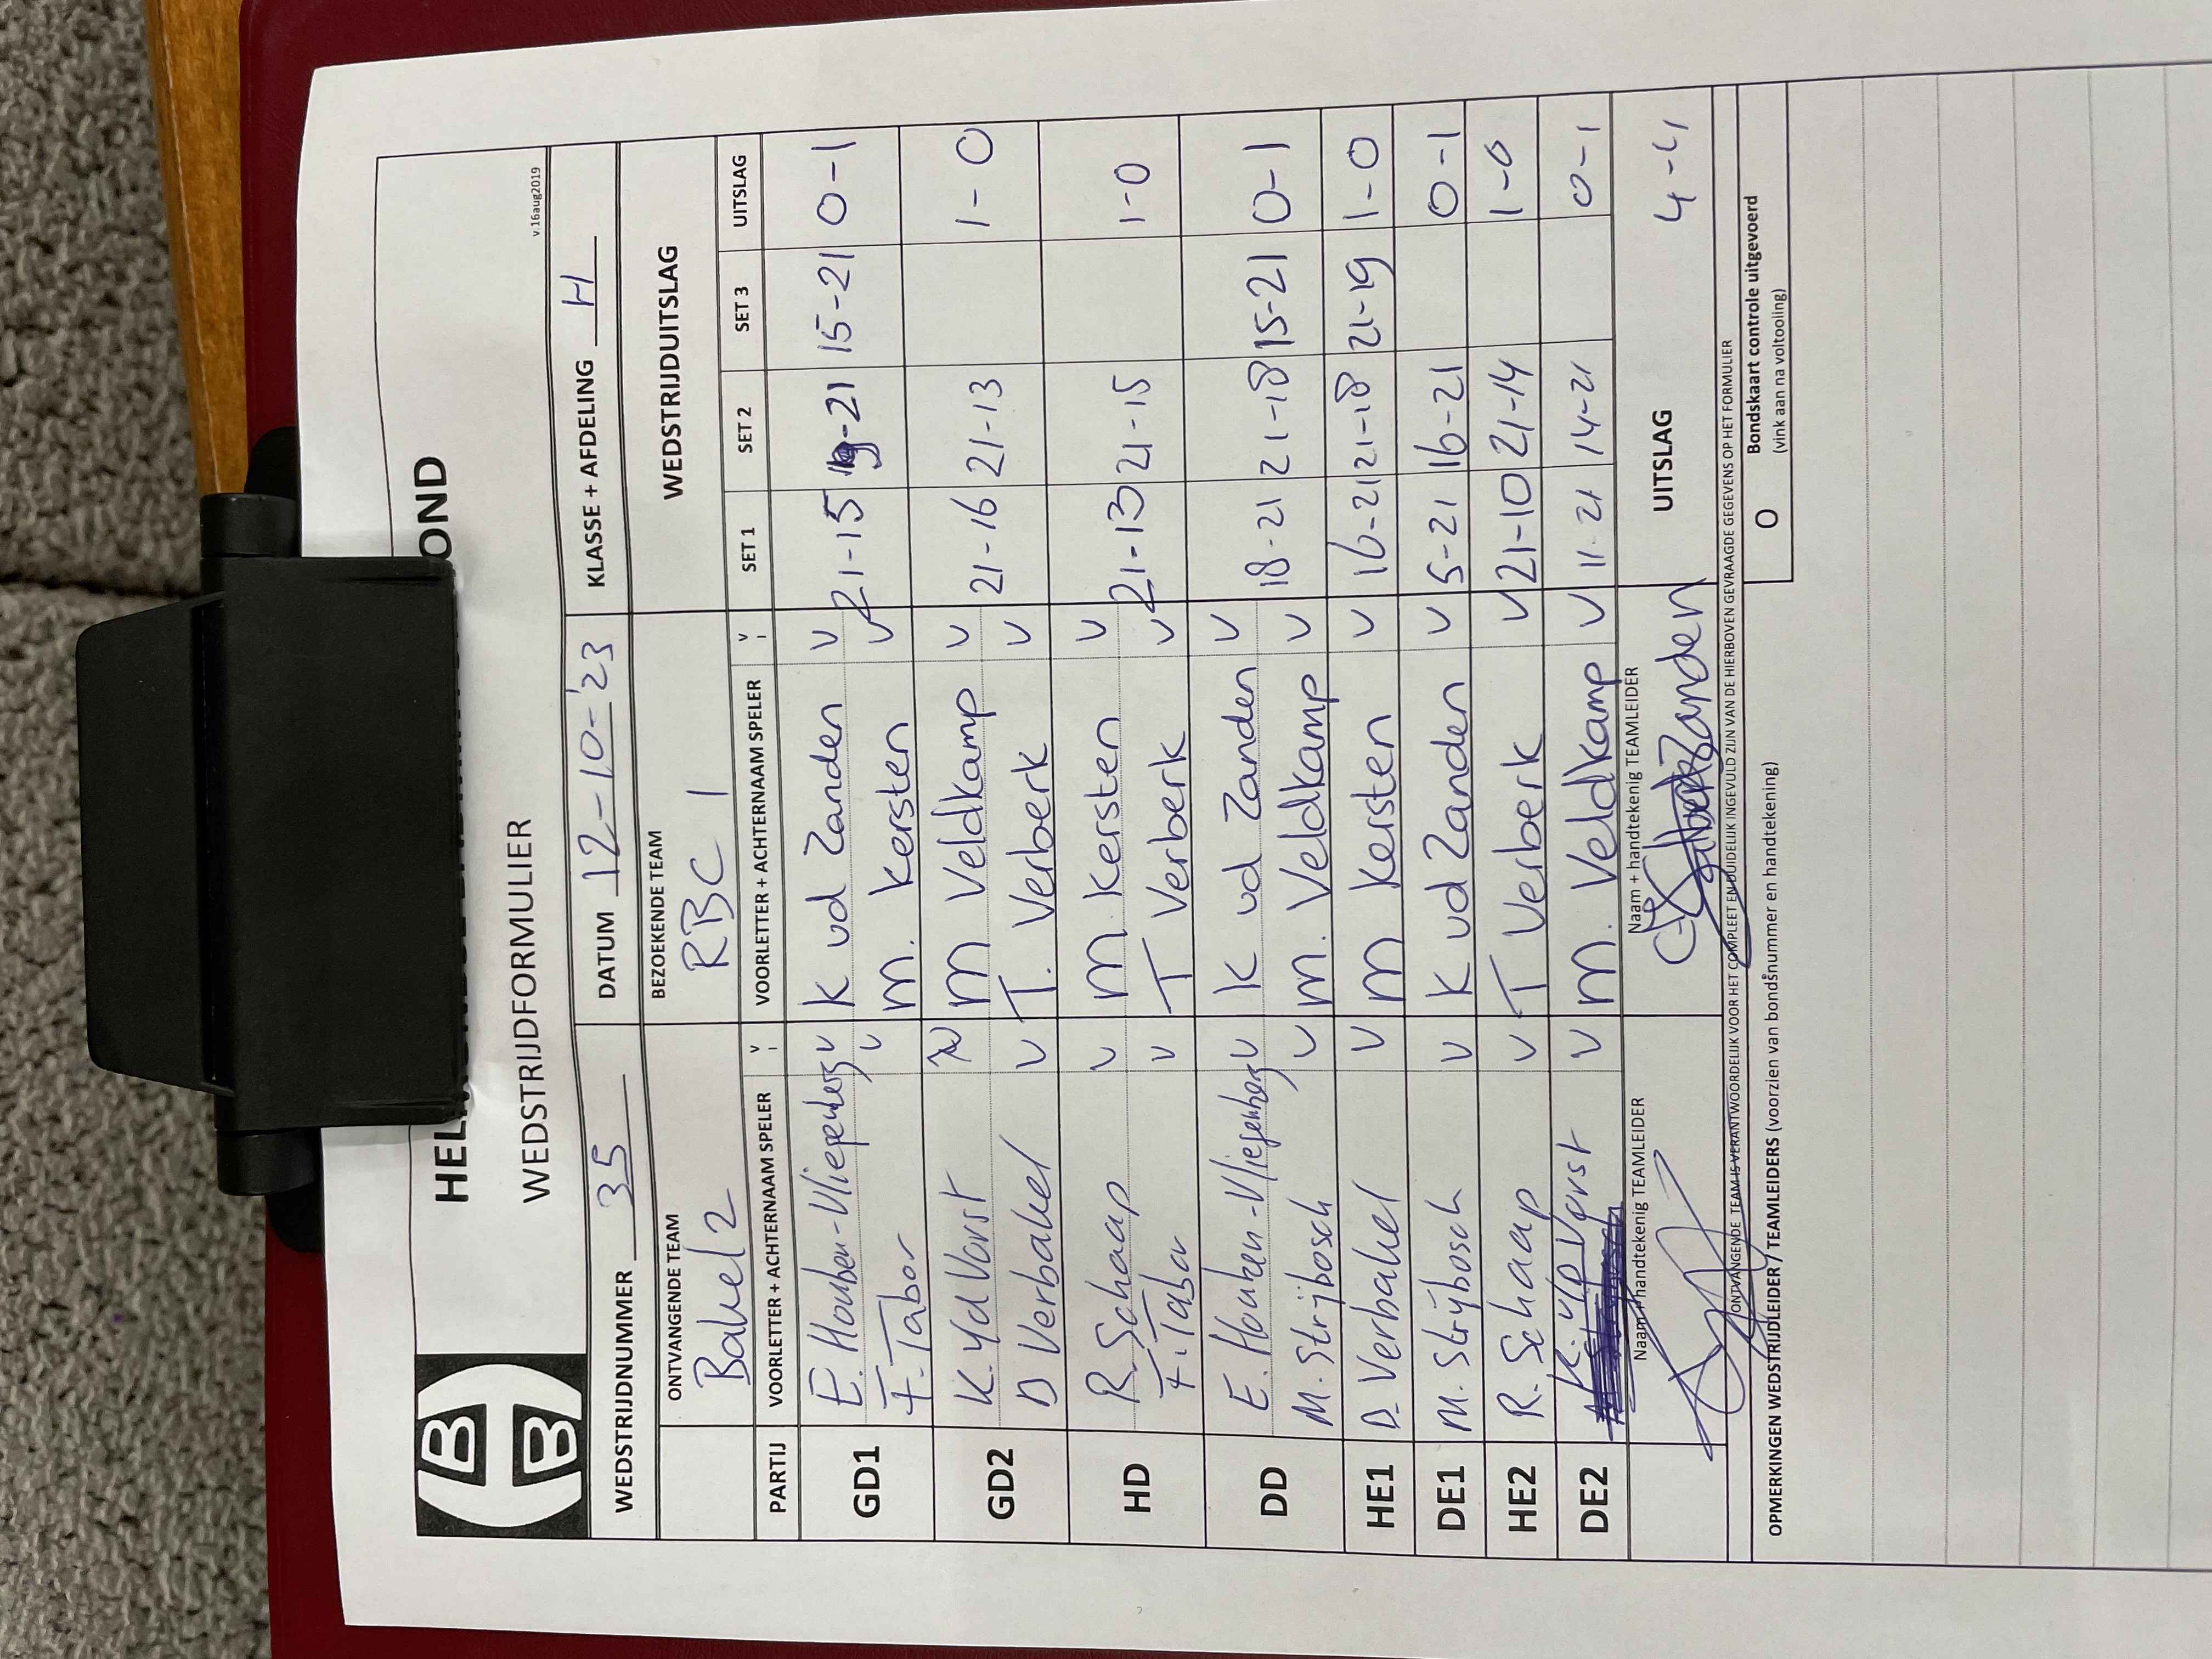 B
B
HEL
OND
WEDSTRIJDFORMULIER
v.16aug2019
WEDSTRIJDNUMMER 35 DATUM 12-10-'23 KLASSE + AFDELING H
ONTVANGENDE TEAM BEZOEKENDE TEAM WEDSTRIJDUITSLAG
Bakel 2 RBC 1
PARTIJ VOORLETTER + ACHTERNAAM SPELER V VOORLETTER + ACHTERNAAM SPELER V SET 1 SET 2 SET 3 UITSLAG
GD1 E. Houben-Vliegenberg v K vd Zanden v 21-15 -21 15-21 0-1
F. Tabor v M. Kersten v
GD2 K. vd Vorst M Veldkamp v 21-16 21-13 1-0
D Verbakel v T. Verberk v
HD R. Schaap v M. Kersten v 21-13 21-15 1-0
F. Tabor v T Verberk v
DD E. Houben-Vliegenberg v K vd Zanden v 18-21 21-18 15-21 0-1
M. Strijbosch v M. Veldkamp v
HE1 D. Verbakel v M Kersten v 16-21 21-18 21-19 1-0
DE1 M. Strijbosch v K vd Zanden v 5-21 16-21 0-1
HE2 R. Schaap v T Verberk v 21-10 21-14 1-0
DE2 K. vd Vorst v M. Veldkamp v 11-21 14-21 0-1
Naam + handtekenig TEAMLEIDER Naam + handtekenig TEAMLEIDER UITSLAG 4-4
Zanden
ONTVANGENDE TEAM IS VERANTWOORDELIJK VOOR HET COMPLEET EN DUIDELIJK INGEVULD ZIJN VAN DE HIERBOVEN GEVRAAGDE GEGEVENS OP HET FORMULIER
OPMERKINGEN WEDSTRIJDLEIDER / TEAMLEIDERS (voorzien van bondsnummer en handtekening)
O Bondskaart controle uitgevoerd
(vink aan na voltooling)